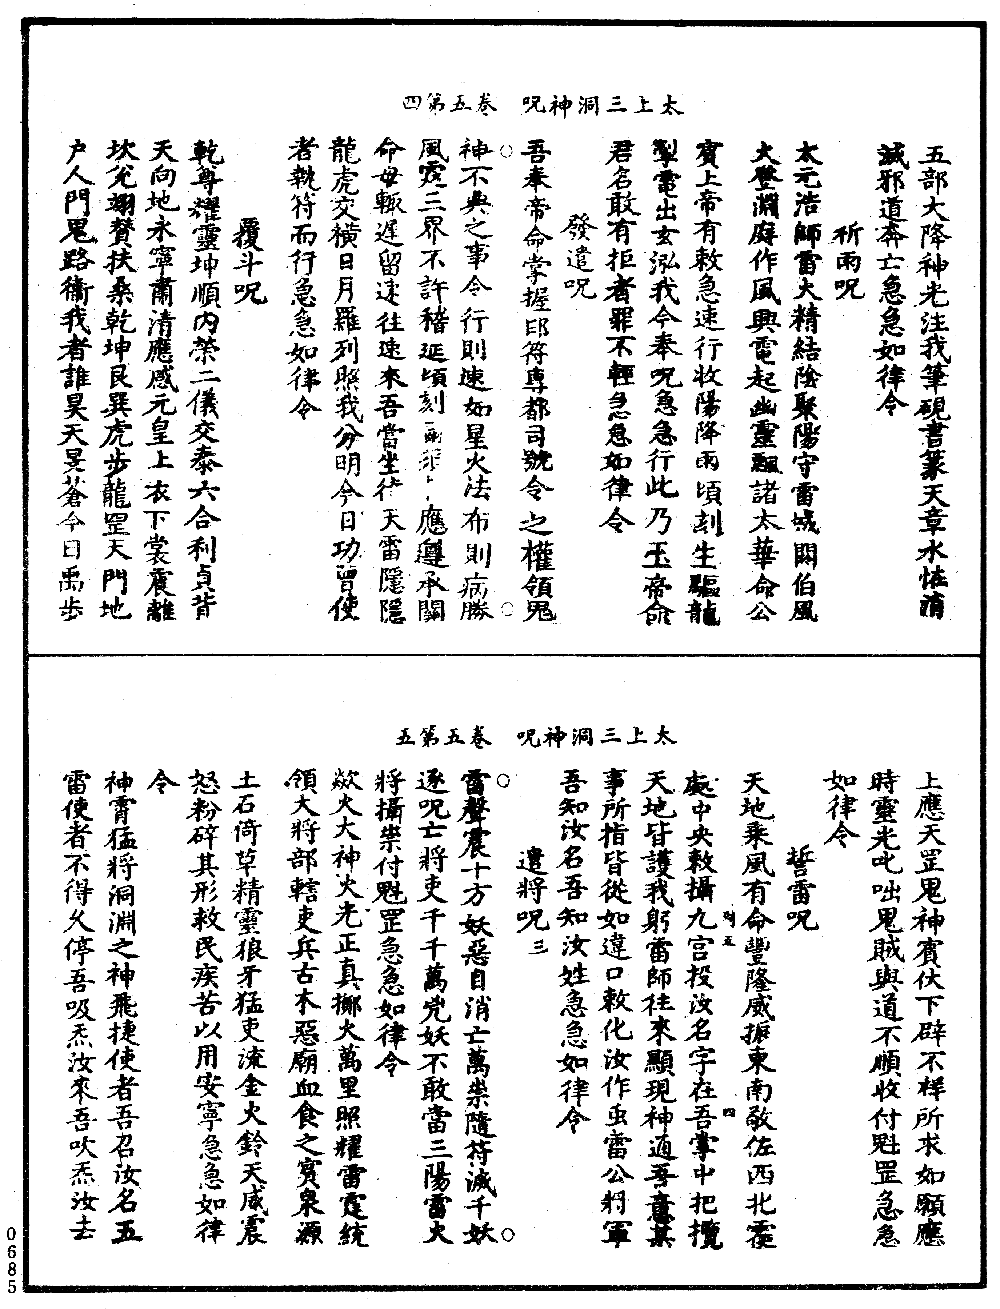 太上三洞神呪　卷五第四
五部大降神光注我筆硯書篆天章水怪消
滅邪道奔亡急急如律令
祈雨呪
太元浩師雷火精結陰聚陽守雷城關伯風
火登淵庭作風興電起幽靈飄諸太華命公
賓上帝有敕急速行收陽降雨頃刻生驅龍
掣電出玄泓我今奉呪急急行此乃玉帝命
君名敢有拒者罪不輕急急如律令
發遣呪
吾奉帝命掌握印符專都司號令之權領鬼
神不典之事令行則速如星火法布則病勝
風霆三界不許稽延頃刻 應遵承關
命毋輒遲留速往速來吾當坐待天雷隱隱
龍虎交橫日月羅列照我分明今日功曹使
者執符而行急急如律令
覆斗呪
乾尊耀靈坤順內榮二儀交泰六合利貞背
天向地永寧肅清應感元皇上衣下裳震離
坎兌翊贊扶桑乾坤艮巽虎步龍罡天門地
戶人門鬼路衛我者誰昊天旻蒼今日禹步
太上三洞神呪　卷五第五
上應天罡鬼神賓伏下辟不祥所求如願應
時靈光叱咄鬼賊與道不順收付魁罡急急
如律令
誓雷呪
天地乘風有命豐隆威振東南敬佐西北霆
處中央敕攝九宮投汝名字在吾掌中把攬
天地皆護我躬雷師往來顯現神通吾意某
事所指皆從如違口敕化汝作虫雷公將軍
吾知汝名吾知汝姓急急如律令
遣將呪三
雷聲震十方妖惡自消亡萬祟隨符滅千妖
逐呪亡將吏千千萬兇妖不敢當三陽雷火
將攝祟付魁罡急急如律令
歘火大神火光正真擲火萬里照耀雷霆統
領大將部轄吏兵古木惡廟血食之賓泉源
土石倚草精靈狼牙猛吏流金火鈴天威震
怒粉碎其形救民疾苦以用安寧急急如律
令
神霄猛將洞淵之神飛捷使者吾召汝名五
雷使者不得久停吾吸炁汝來吾吹炁汝去
0685